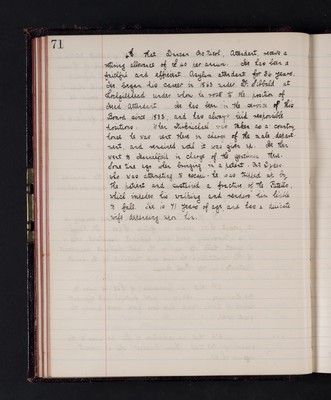 71
4. That Duncan McNicol, Attendant, receive a
retiring allowance of £ as per annum. He has been a
faithful and efficient Asylum attendant for 30 years.
He began his career in 1863 under Dr. Sibbald at
Lochgilphead under whom he rose to the position of
Head Attendant. He has been in the service of this
Board since 1883, and has always held responsible
positions. When was taken as a country
house he was sent there in charge of the male depart-
ment and remained until it was given up. He then
went to in charge of the patients there.
Some time ago when bringing in a patient
who was attempting to escape he was kicked by
the patient and sustained a fracture of the Patella,
which impedes his walking and renders him liable
to fall. He is 71 years of age and has a
wife depending upon him.